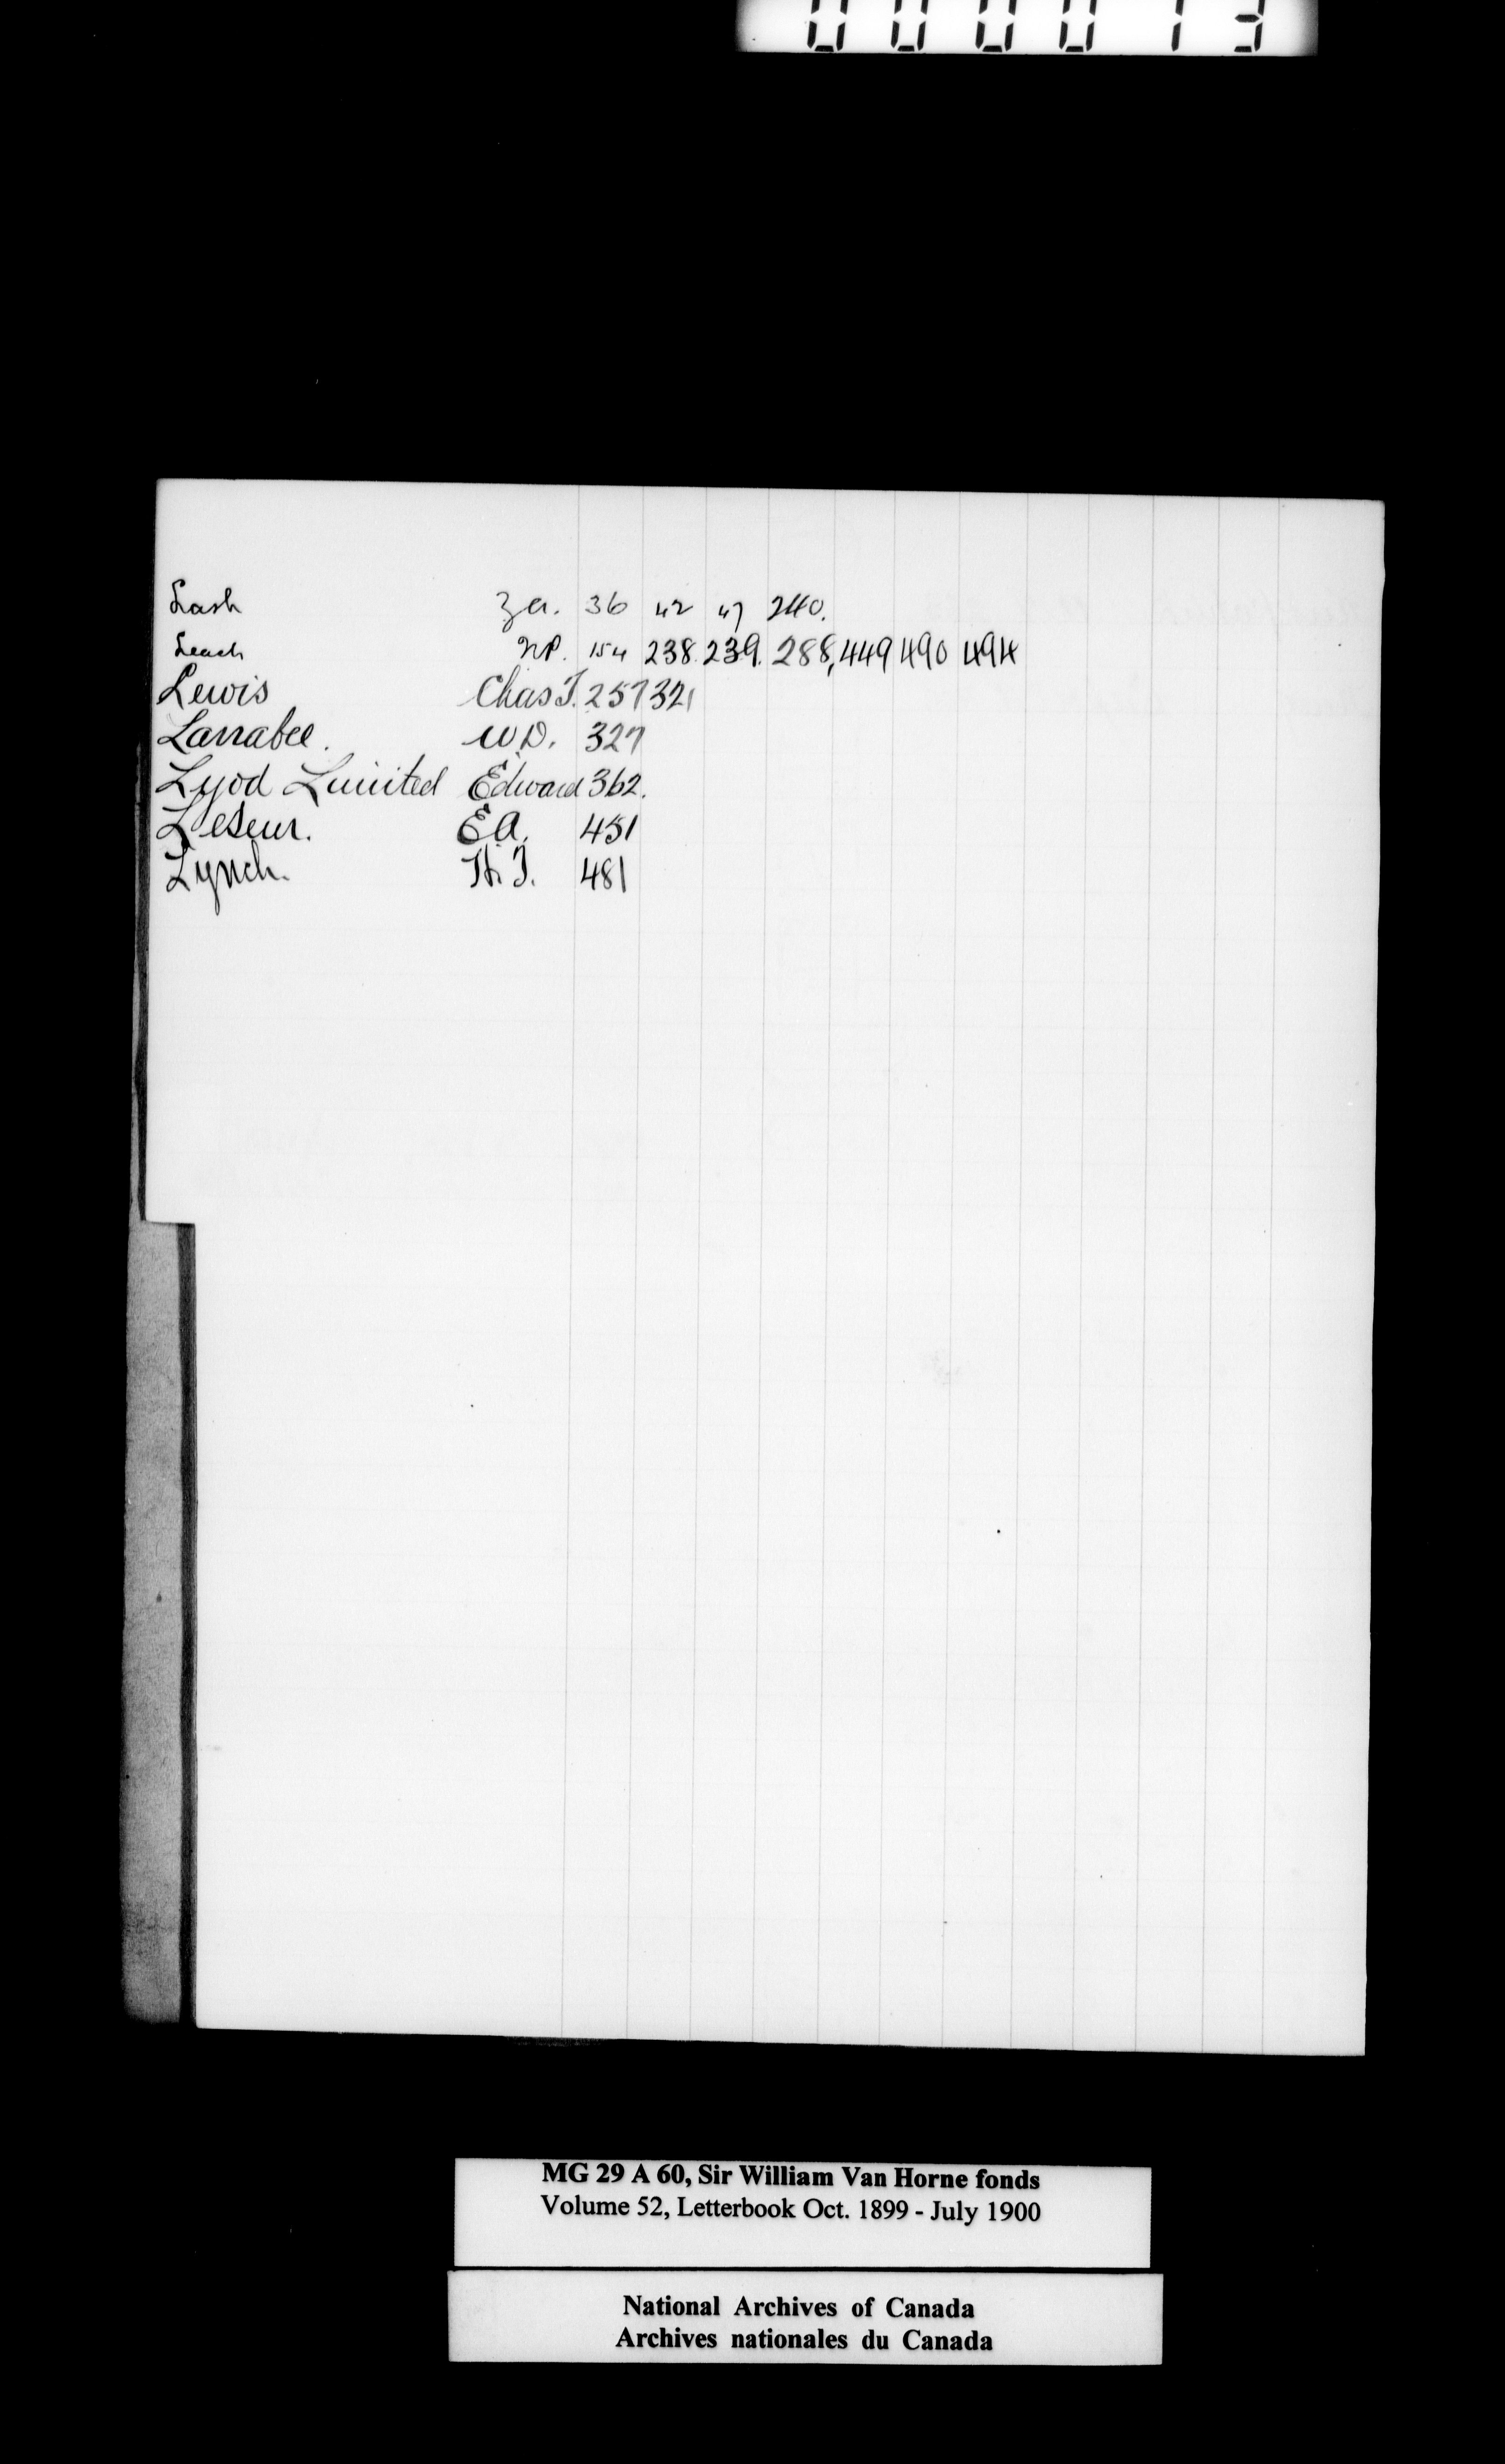 000013
Lash Z.A. 36 42 47 240.
Leach N.P. 154 238. 239. 288, 449 490 494
Lewis Chas T. 257 321
Larrabee. W.D. 327
Lyod Limited Edward 362.
LeSeur. E.A. 451
Lynch. 481
MG 29 A 60, Sir William Van Horne fonds
Volume 52, Letterbook Oct. 1899 - July 1900
National Archives of Canada
Archives nationales du Canada